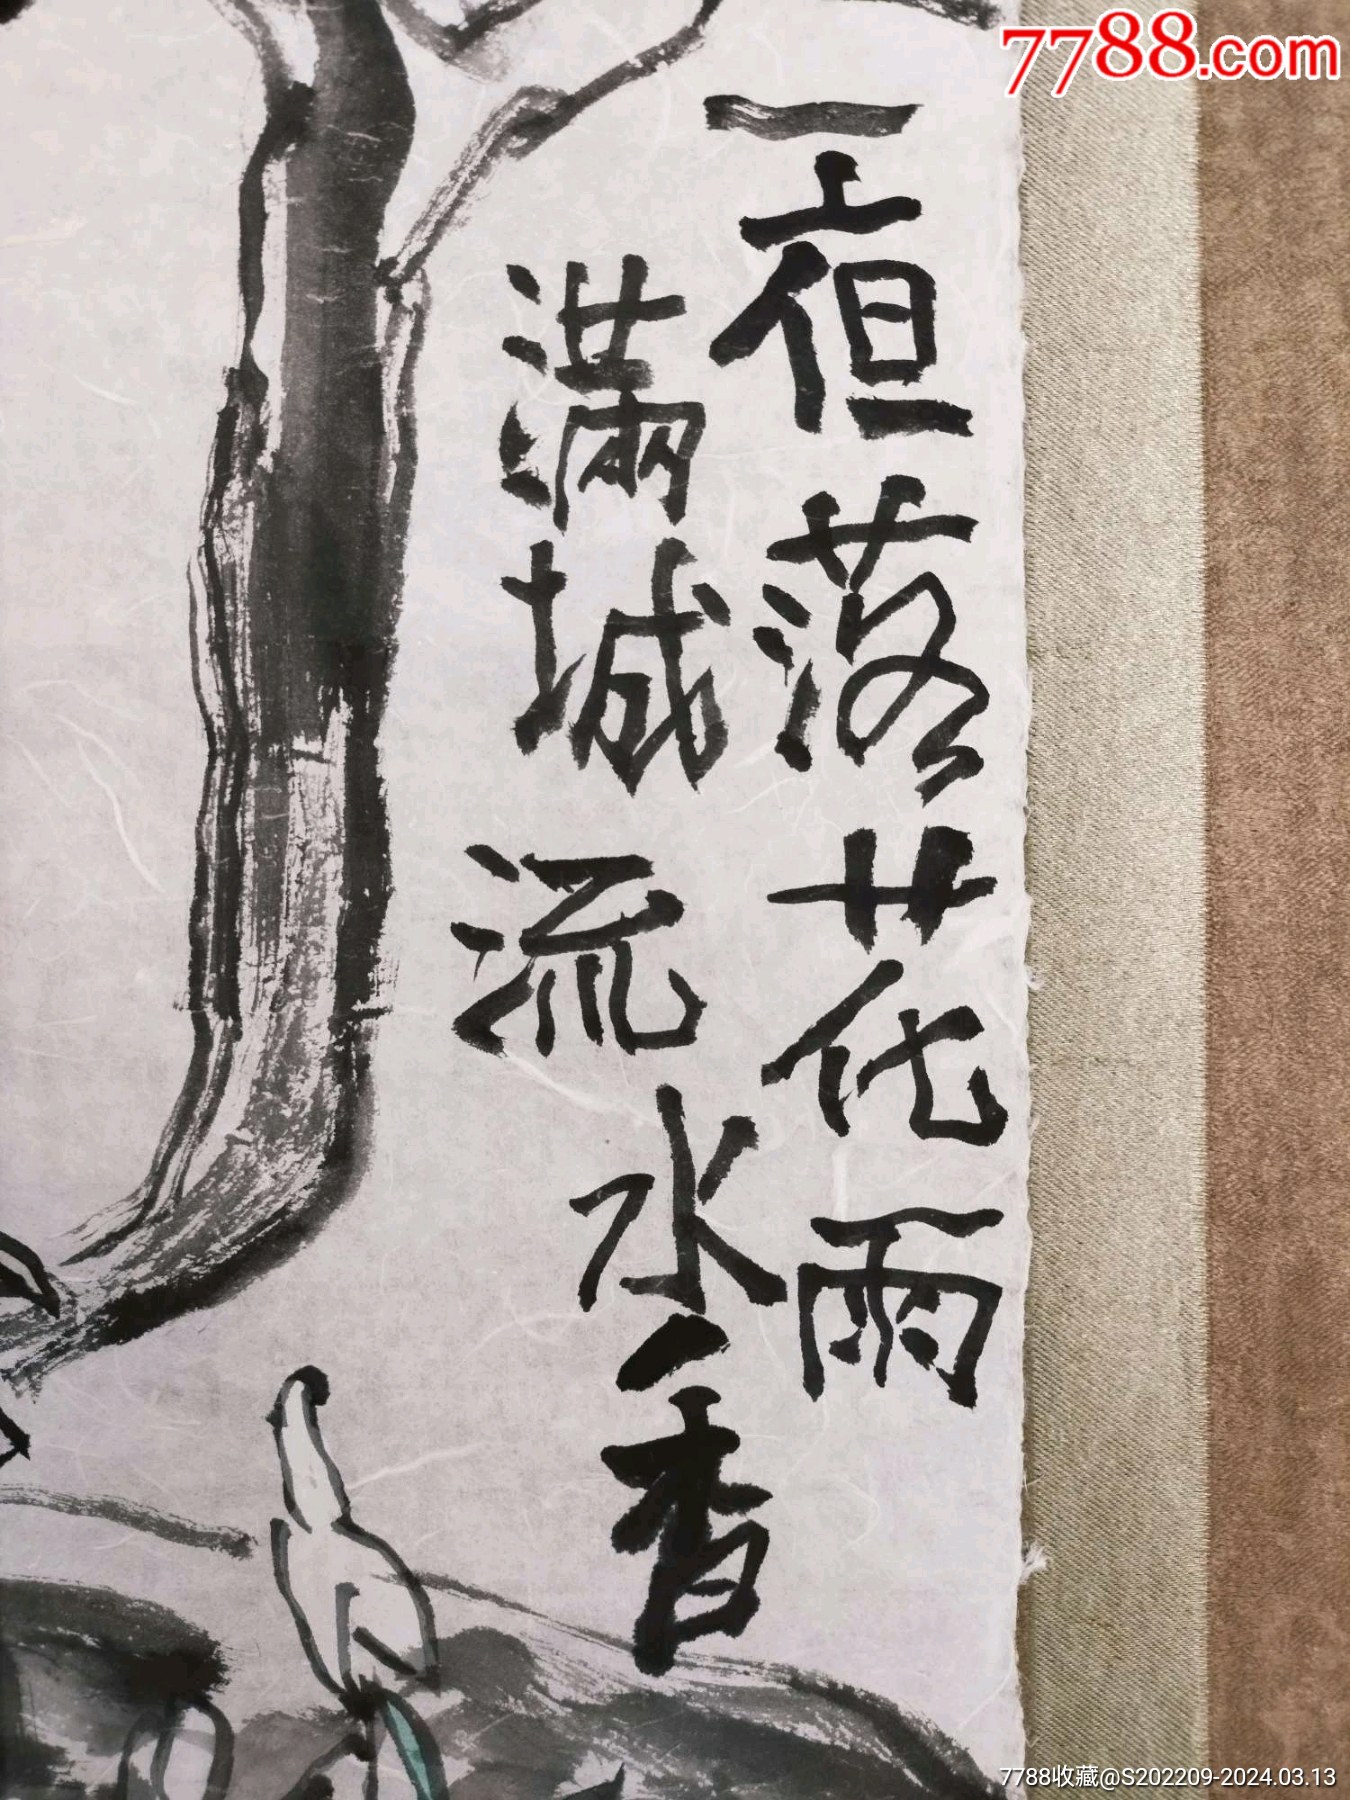 7788.com
一夜落花雨
滿城流水香
7788收藏@S202209-2024.03.13